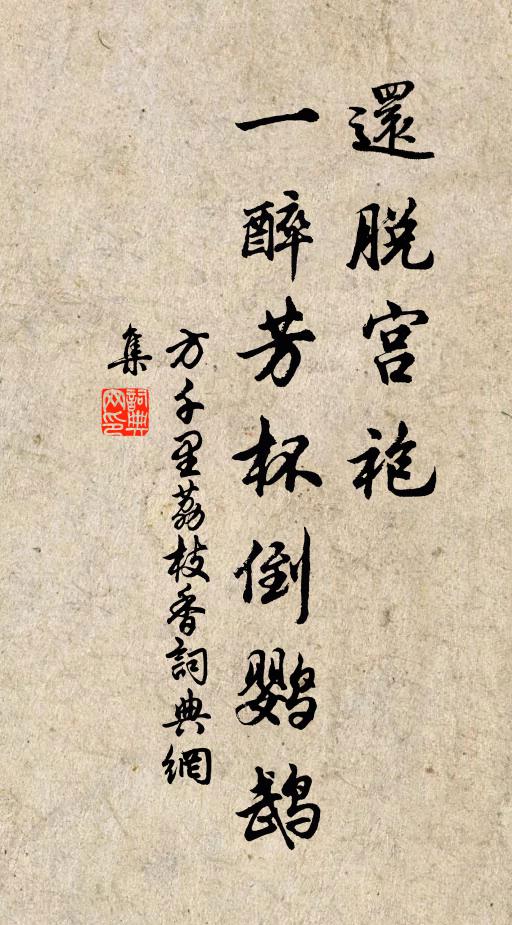 還脱宫袍
一醉芳杯倒鹦鹉
方千里荔枝香詞典網
集
詞典
网印